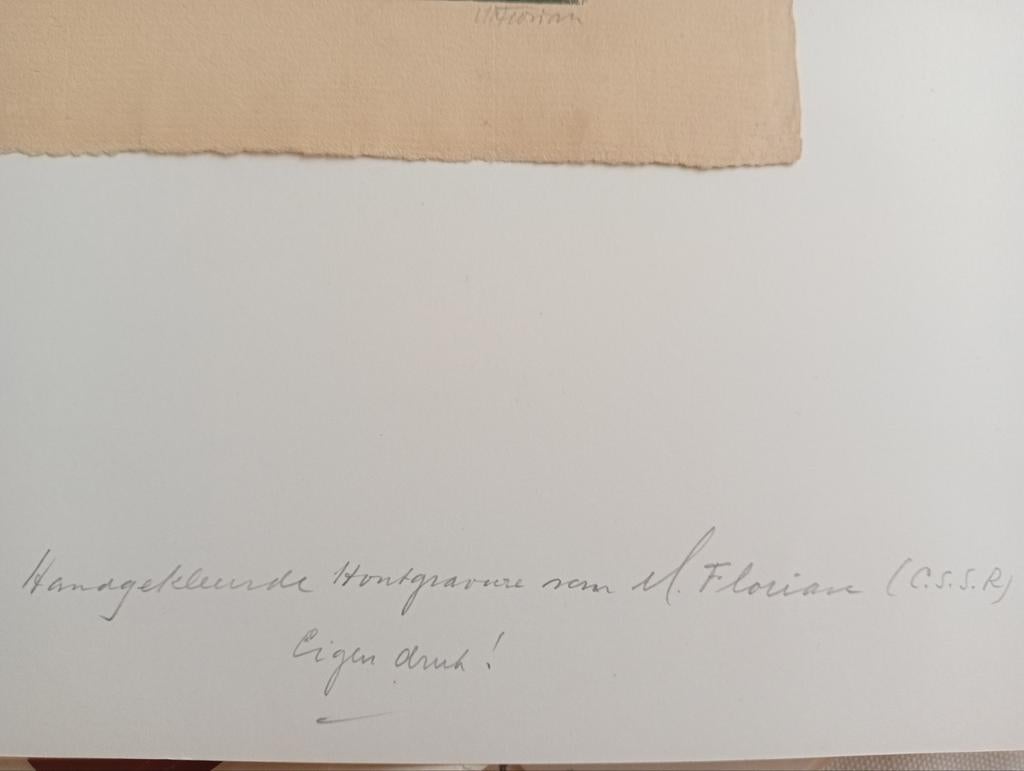 M. Florian
Handgekleurde Houtgravure van M. Florian (C.S.S.R)
Eigen druk!